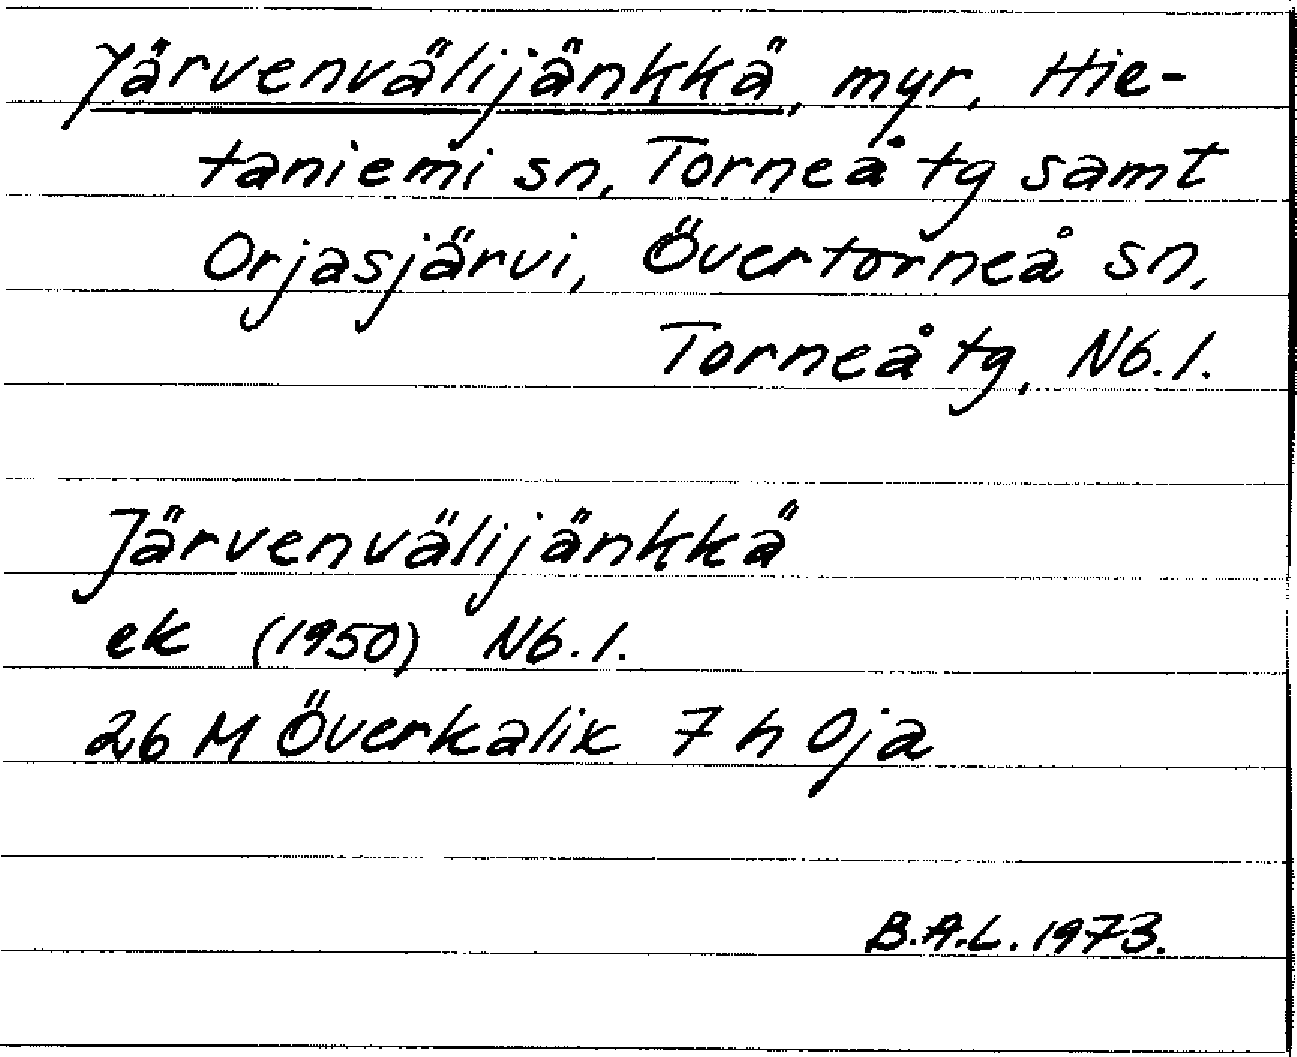 Järvenvälijänkkä, myr, Hie-
taniemi sn, Torneå tg samt
Orjasjärvi, Övertorneå sn,
Torneå tg, Nb.l.
Järvenvälijänkkä
ek (1950) Nb.l.
26 M Överkalix 7 h Oja
B.A.L. 1973.